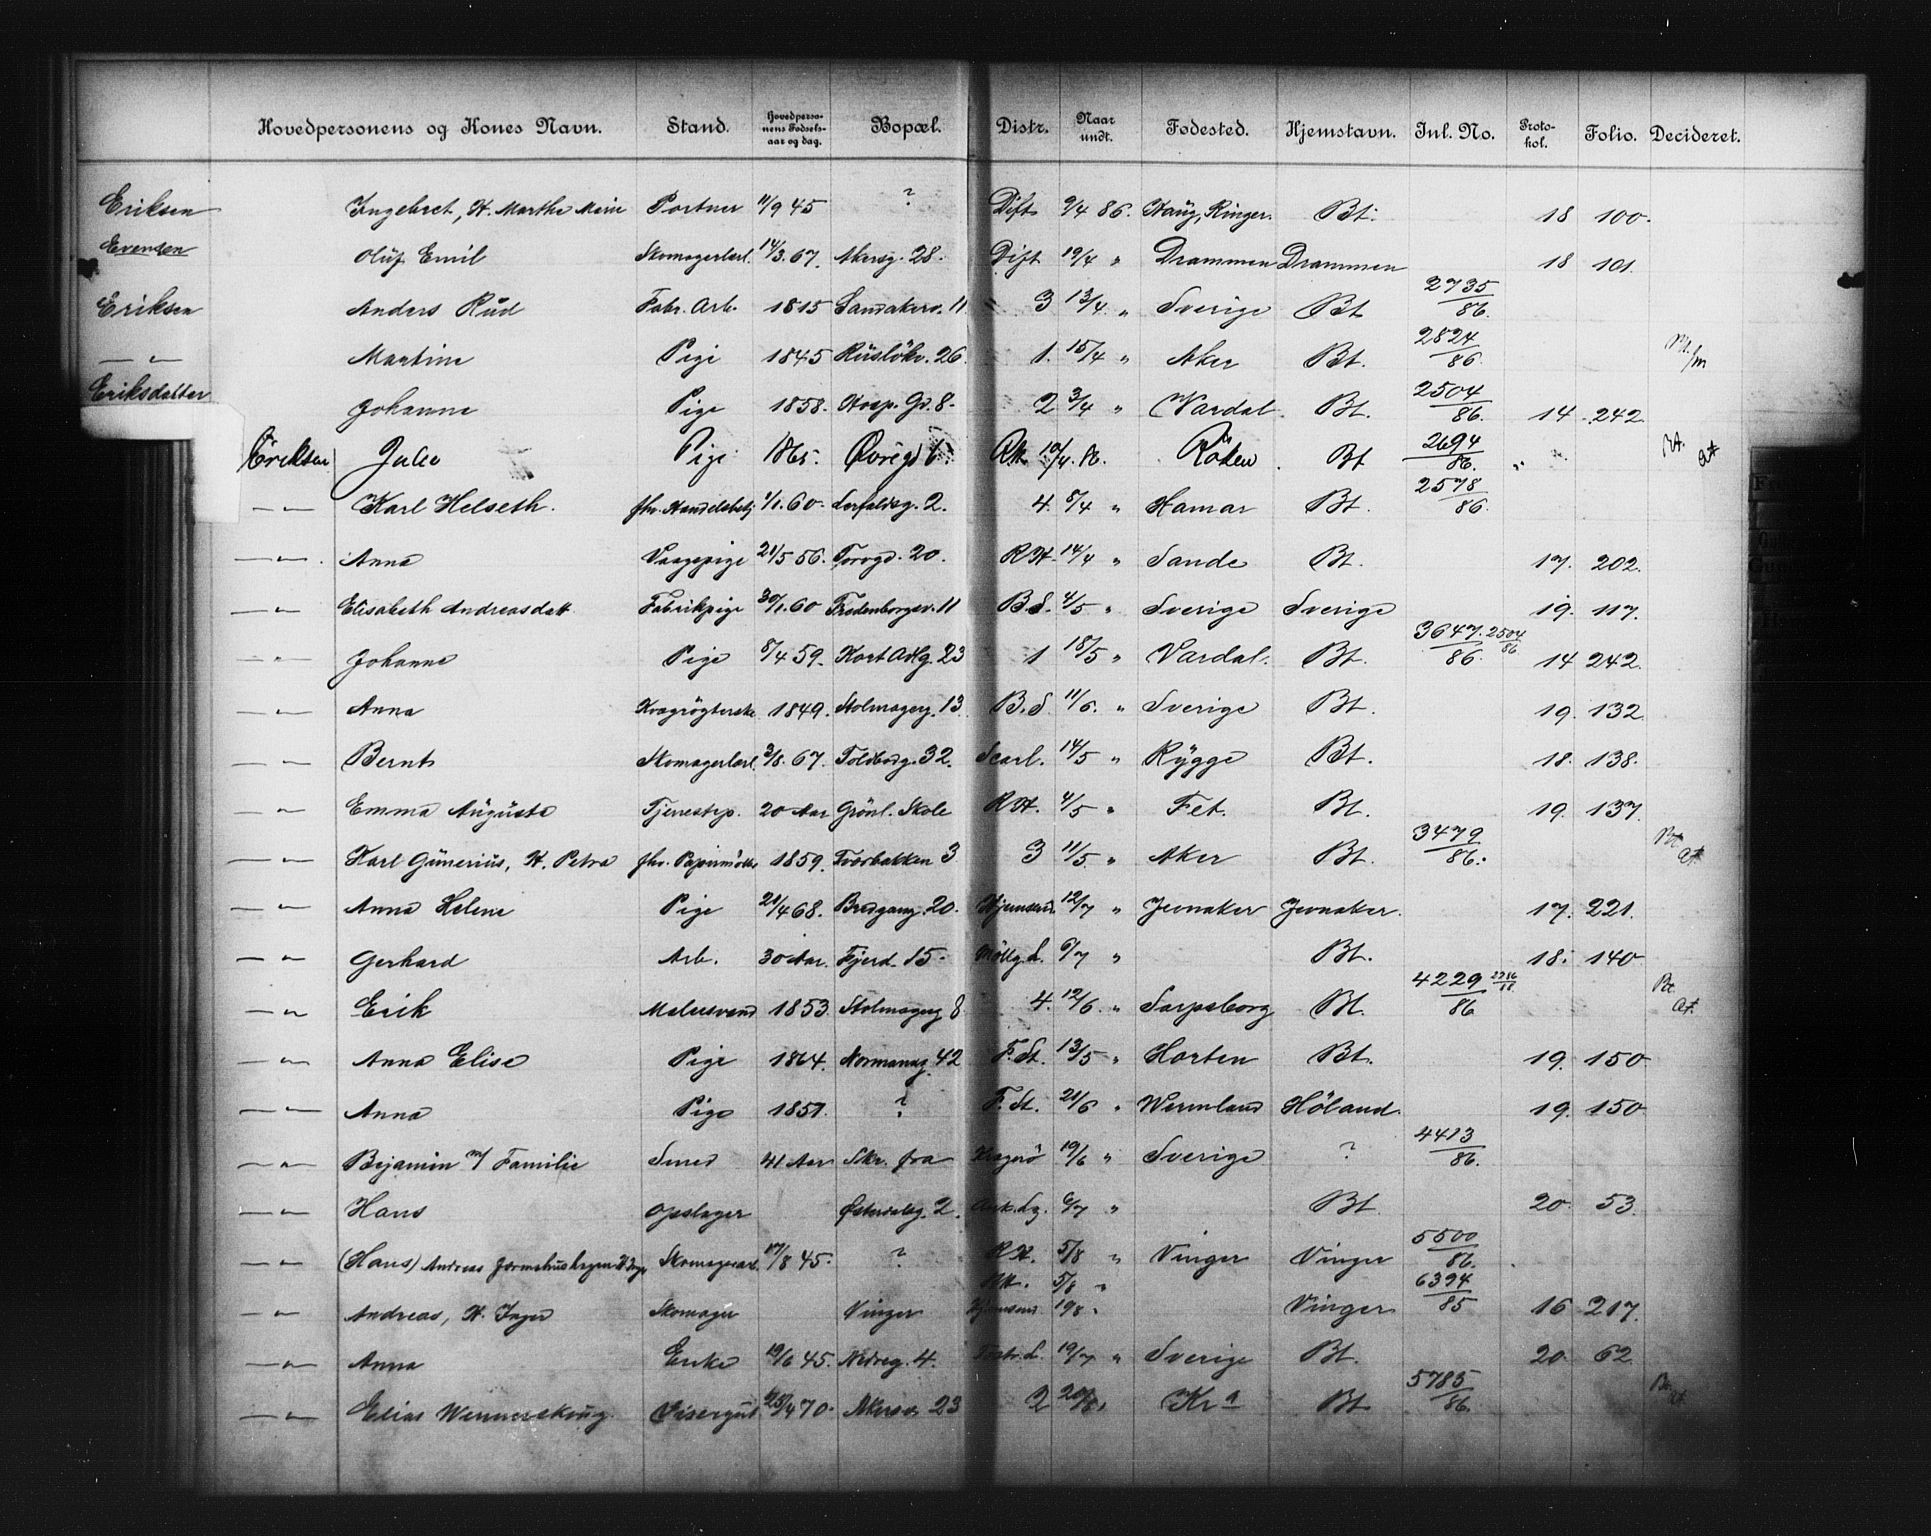 Hovedpersonens og Kones Navn. Stand. Hovedpersonens Fødselsaar og dag. Bopæl. Distr. Naar undt. Fødested. Hjemstavn. Inl. No. Protokol. Folio. Decideret.
Eriksen Ingebret, H. Marthe Marie Portner 11/9 45 ? Dift 9/4 86. Haug, Ringer. Bt. 18 100.
Evensen Oluf Emil Skomagerlærl. 14/3. 67. Akersg. 28. Dift 19/4 " Drammen Drammen 18 101.
Eriksen Anders Rud Fabr. Arb. 1815 Sandakerv. 11 3 13/4. " Sverige Bt 2735/86.
— " — Martine Pige 1845 Rusløkv. 26. 1. 15/4 " Aker Bt. 2824/86.
Eriksdatter Johanne Pige 1858. Hosp. Gd. 8. 2 3/4 " Vardal. Bt. 2504/86. 14 242.
Eriksen Julie Pige 1865. Øvregd 6. 10/4. 86. Røken. Bt 2694/86. Bt. at
— " — Karl Helseth. fhv. Handelsbetj 1/1. 60. Lerfaldsg. 2. 4. 5/4 " Hamar Bt. 2578/86.
— " — Anna Vaagepige 21/5 56. Torvgd. 20. R.H. 14/4 " Sande Bt. 17. 202.
— " — Elisabeth Andreasdatt Fabrikpige 30/1. 60 Fredenborgsv. 11 B.S. 4/5 " Sverige Sverige 19. 117.
— " — Johanne Pige 8/4 59. Kort Adlg. 23 1 18/5 " Vardal. Bt. 3647/86. 2504/86 14 242.
— " — Anna Kvægrøgterske 1849. Stolmagerg. 13 B.S 11/6. " Sverige Bt. 19. 132.
— " — Bernt Skomagerlærl. 3/8. 67. Toldbodg. 32. Scarl. 14/5 " Rygge Bt. 18. 138.
— " — Emma Augusta Tjenestep. 20 Aar Grønl. Skole R.H. 4/5 " Fet. Bt. 19. 137.
— " — Karl Gunerius, H. Petra fhv. 1859. Tværbakken 3 3 11/5 " Aker Bt. 3479/86. Bt. at.
— " — Anna Helene Pige 21/4 68. Bredgang. 20. 12/7 " Jevnaker Jevnaker. 17. 221.
— " — Gerhard Arb. 30 Aar. Fjerd. 15. Møllg. S. 6/7 " Bt. 18. 140
— " — Erik Malersvend 1853. Stolmagerg 8 4. 12/6. " Sarpsborg Bt. 4229/86 Bt. at.
— " — Anna Elise Pige 1864. Normannsg. 42 F. St. 13/5 " Horten Bt. 19. 150
— " — Anna Pige 1851. ? F. St. 21/6 " Wermland Høland. 19. 150
— " — Bejamin m/ Familie Smed 41 Aar Skr. fra Kragerø 19/6 " Sverige ? 4413/86.
— " — Hans Opslager Østerdalsg. 2. 6/7 " Bt 20. 53.
— " — (Hans) Andreas Skomagerarb. 17/8 45. ? R.H. 5/8 " Vinger Vinger 5500/86.
5/8 " 6394/85
— " — Andreas, H. Inger Skomager Vinger 19/8 " Vinger 16 217.
— " — Anna Enke 19/6 45. Nedreg. 4. 19/7 " Sverige Bt. 20. 62
— " — Elias Wennerskoug. Visergut 23/4 70. Akersv. 23 2 20/8. Kra Bt 5785/86. Bt. at.